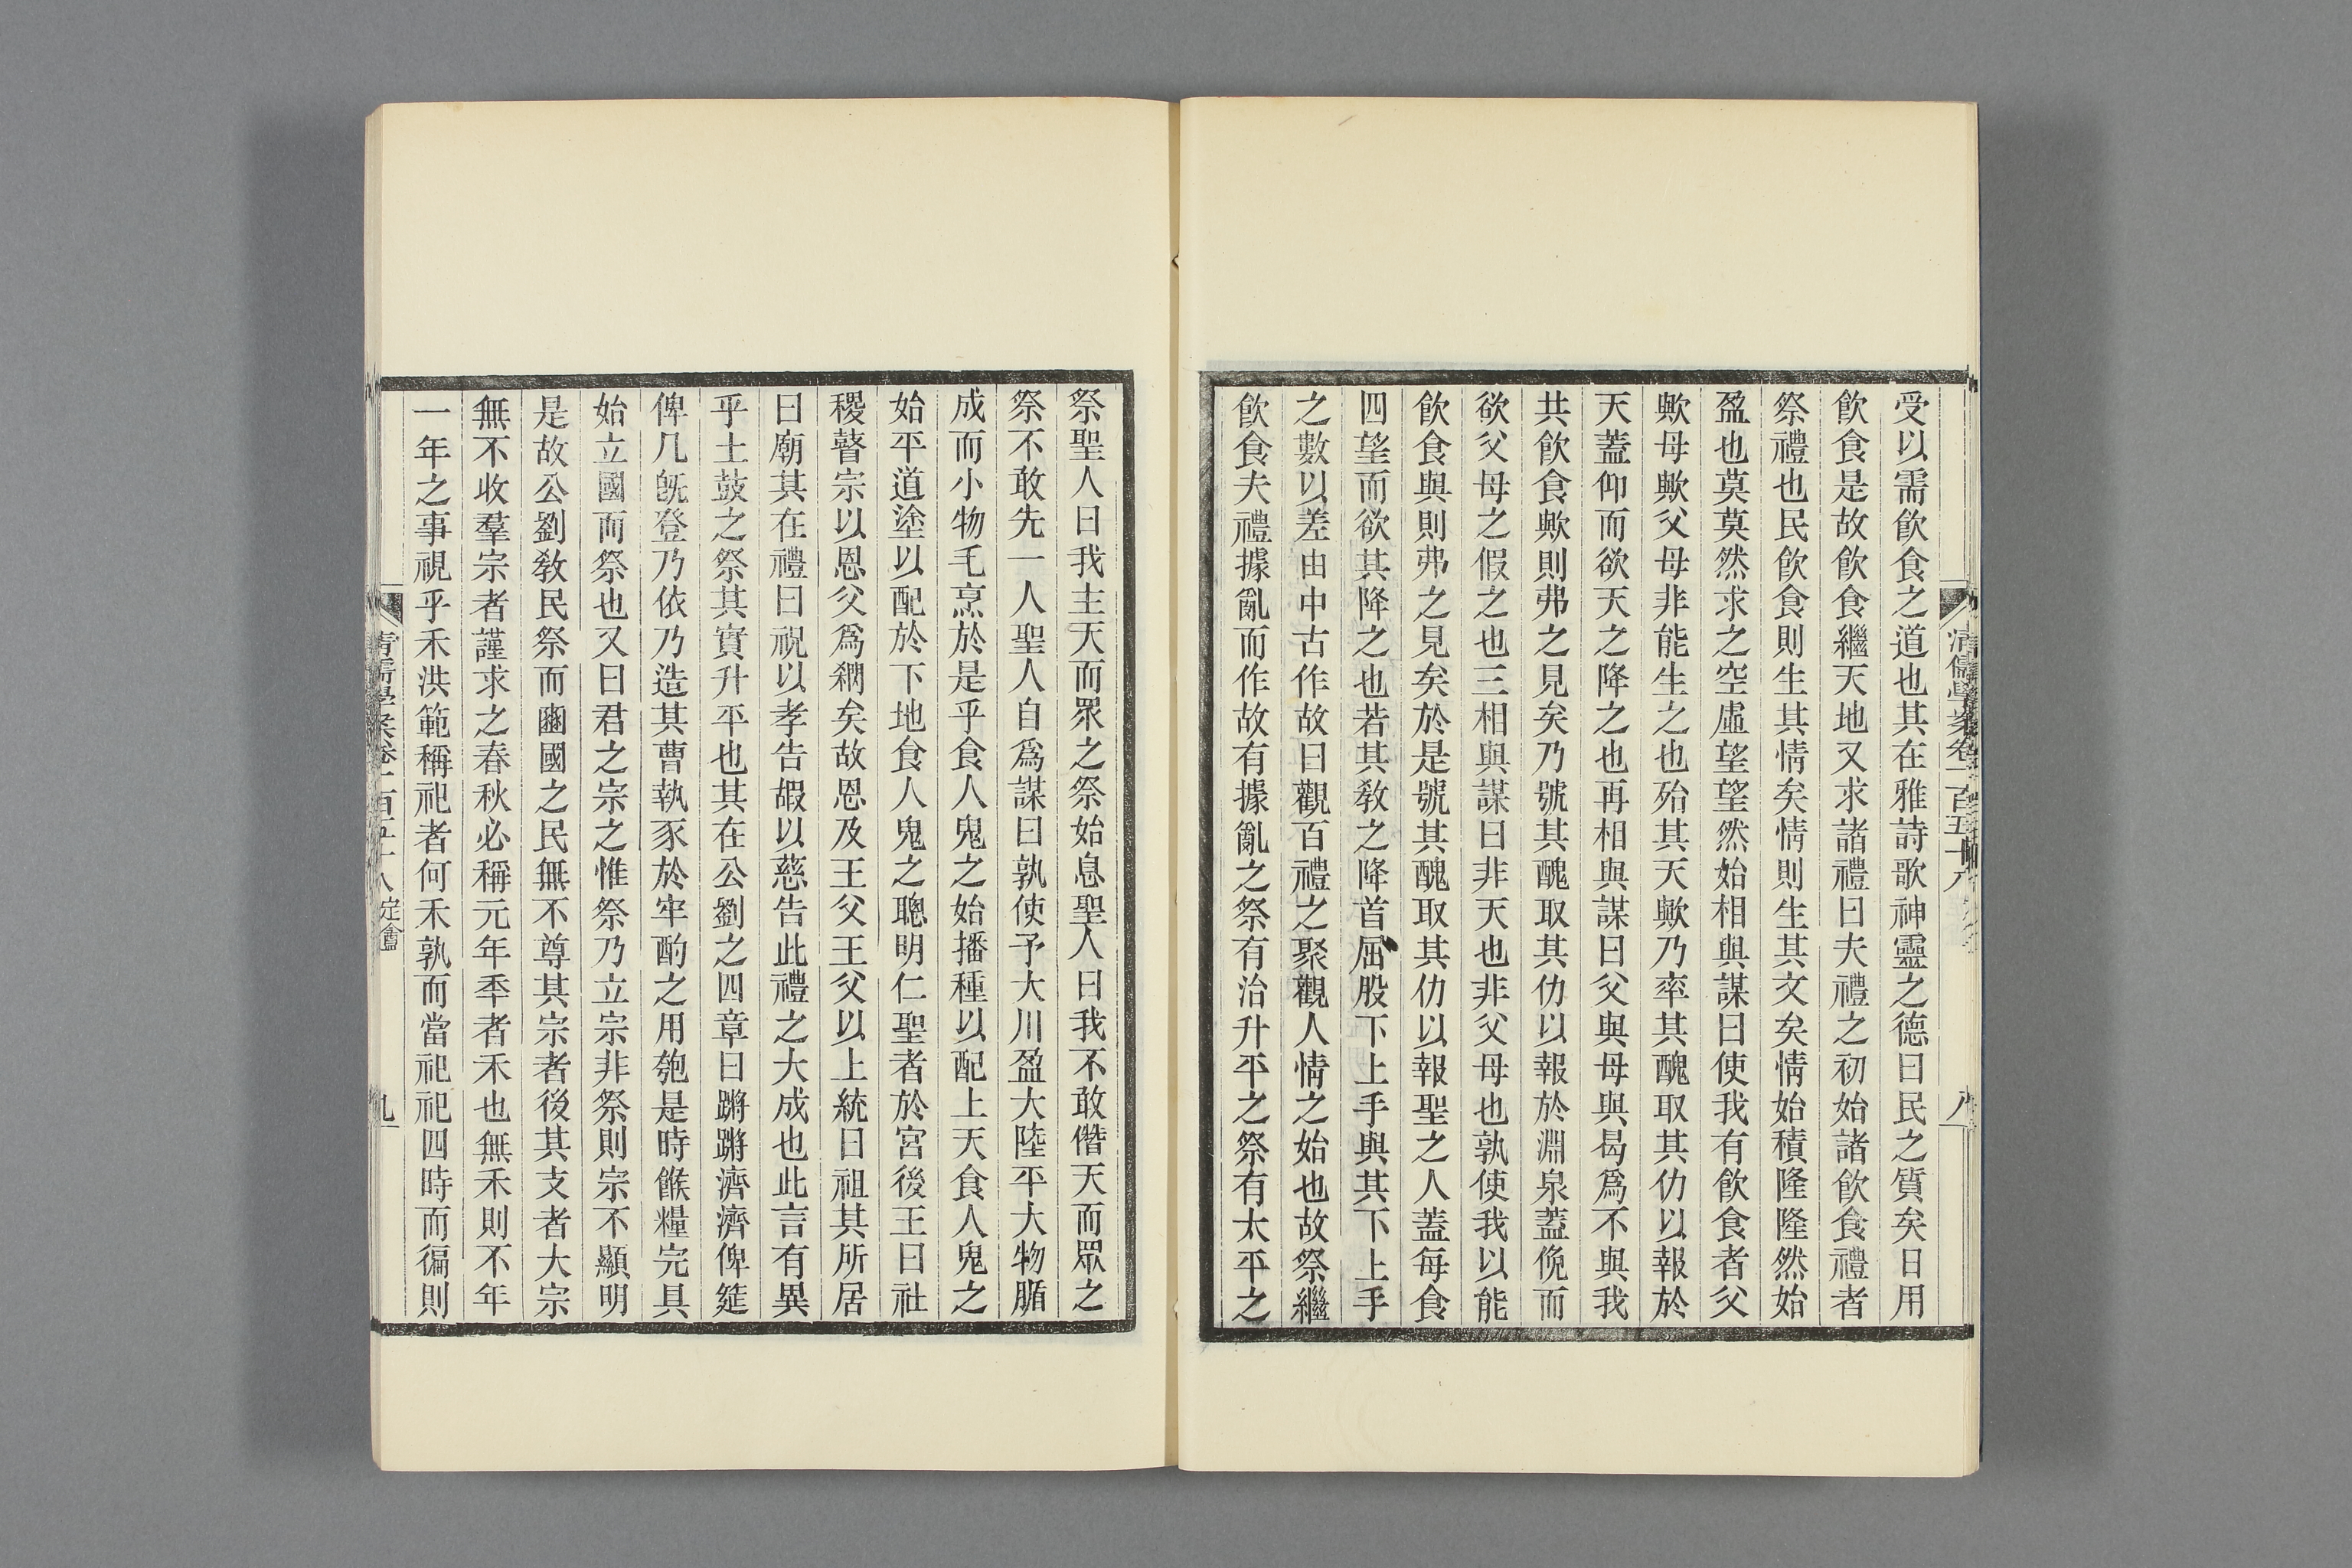 受以需飲食之道也其在雅詩歌神靈之德曰民之質矣日用
飲食是故飲食繼天地又求諸禮曰夫禮之初始諸飲食禮者
祭禮也民飲食則生其情矣情則生其文矣情始積隆隆然始
盈也莫莫然求之空虛望望然始相與謀曰使我有飲食者父
歟母歟父母非能生之也殆其天歟乃率其醜取其仂以報於
天蓋仰而欲天之降之也再相與謀曰父與母與曷爲不與我
共飲食歟則弗之見矣乃號其醜取其仂以報於淵泉蓋俛而
欲父母之假之也三相與謀曰非天也非父母也孰使我以能
飲食與則弗之見矣於是號其醜取其仂以報聖之人蓋每食
四望而欲其降之也若其敎之降首屈股下上手與其下上手
之數以差由中古作故曰觀百禮之聚觀人情之始也故祭繼
飲食夫禮據亂而作故有據亂之祭有治升平之祭有太平之
清儒學案卷一百五十八
八
祭聖人曰我主天而眾之祭始息聖人曰我不敢僭天而眾之
祭不敢先一人聖人自爲謀曰孰使予大川盈大陸平大物腯
成而小物毛烹於是乎食人鬼之始播種以配上天食人鬼之
始平道塗以配於下地食人鬼之聰明仁聖者於宮後王曰社
稷瞽宗以恩父爲襧矣故恩及王父王父以上統曰祖其所居
曰廟其在禮曰祝以孝告嘏以慈告此禮之大成也此言有異
乎土鼓之祭其實升平也其在公劉之四章曰蹡蹡濟濟俾筵
俾几旣登乃依乃造其曹執豕於牢酌之用匏是時餱糧完具
始立國而祭也又曰君之宗之惟祭乃立宗非祭則宗不顯明
是故公劉敎民祭而豳國之民無不尊其宗者後其支者大宗
無不收羣宗者謹求之春秋必稱元年秊者禾也無禾則不年
一年之事視乎禾洪範稱祀者何禾孰而當祀祀四時而徧則
清儒學案卷一百五十八 定盦
九